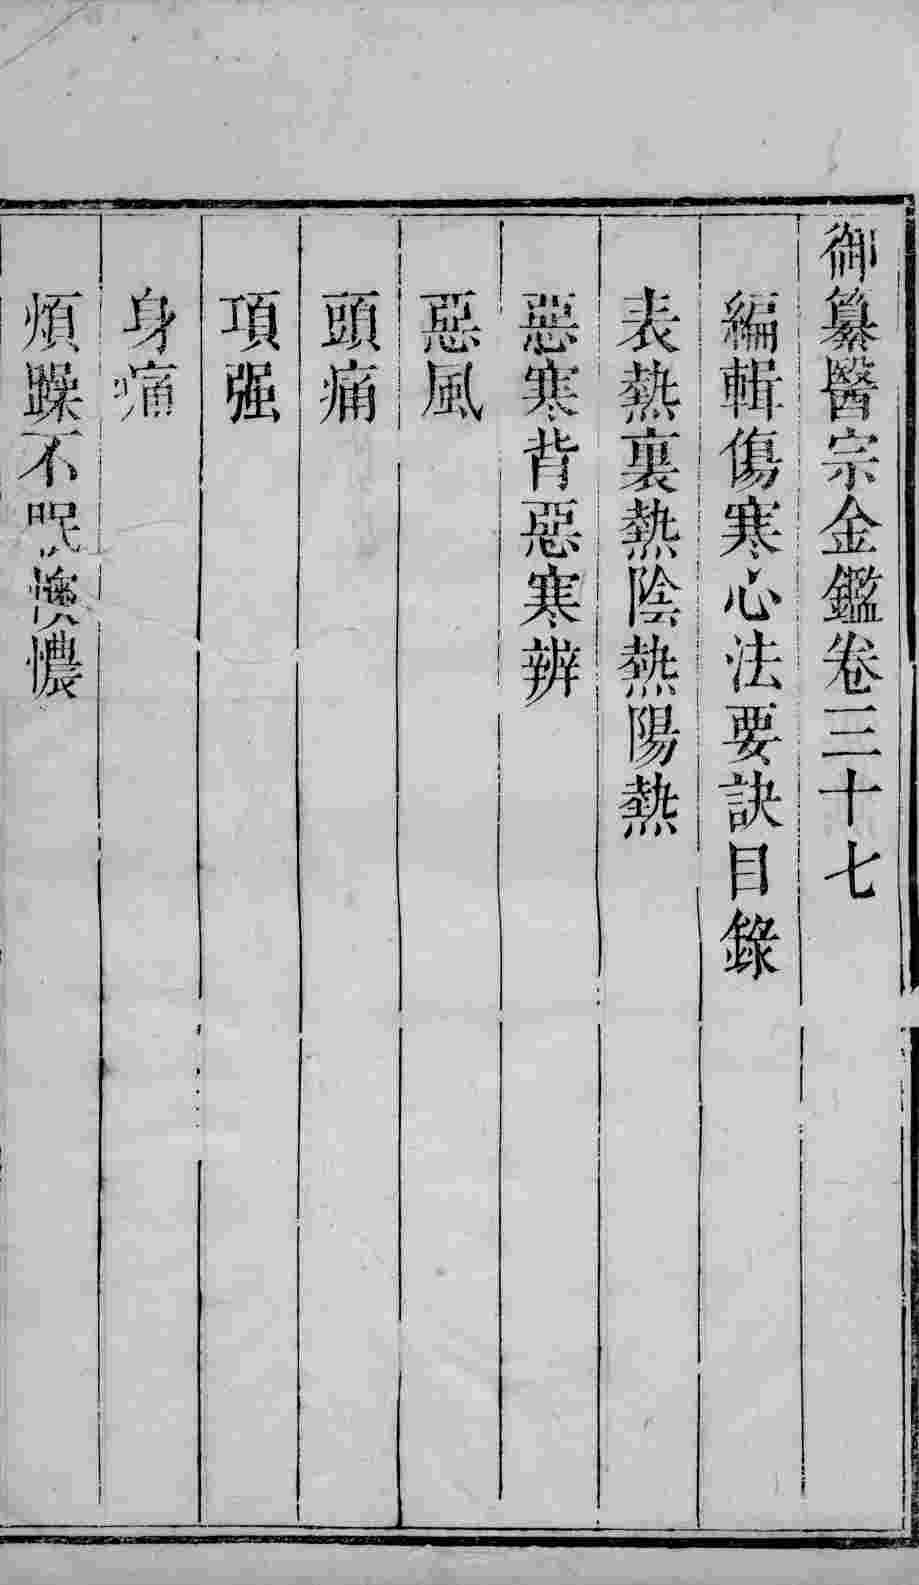 御纂醫宗金鑑卷三十七
編輯傷寒心法要訣目錄
表熱裏熱陰熱陽熱
惡寒背惡寒辨
惡風
頭痛
項强
身痛
煩躁不眠懊憹